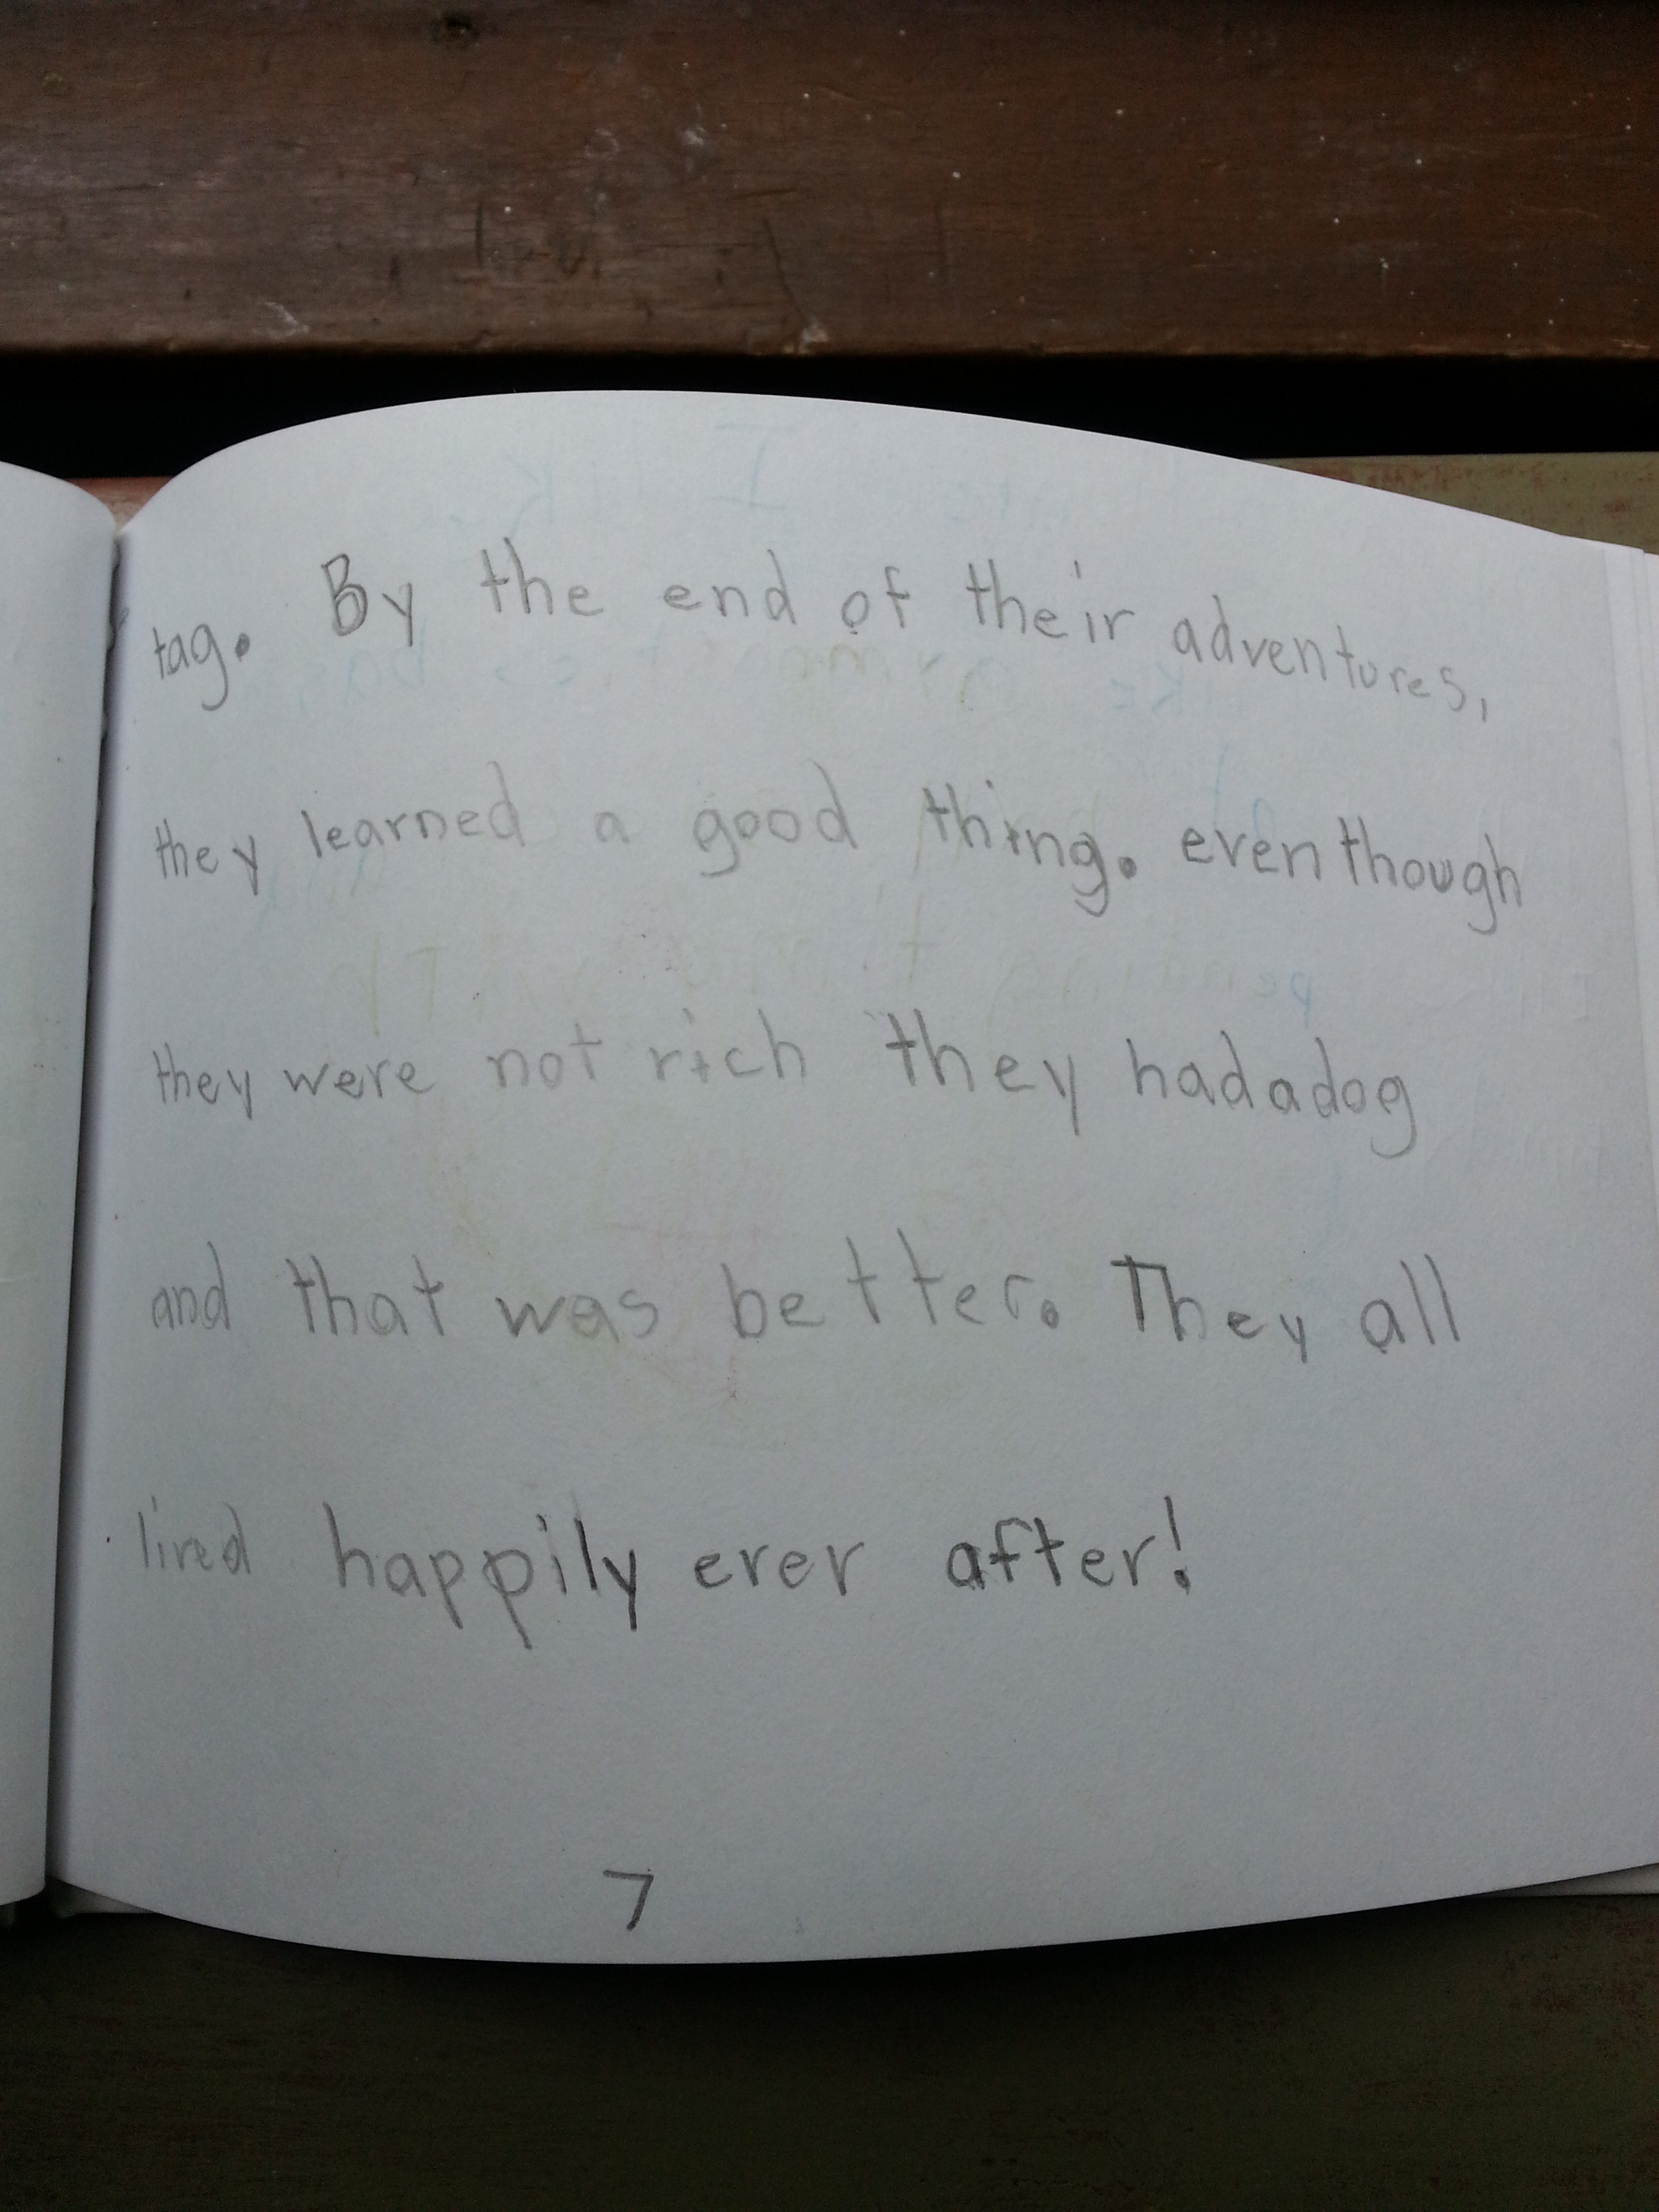 tag. By the end of their adventures,
they learned a good thing. even though
they were not rich they had a dog
and that was better. They all
lived happily ever after!
7